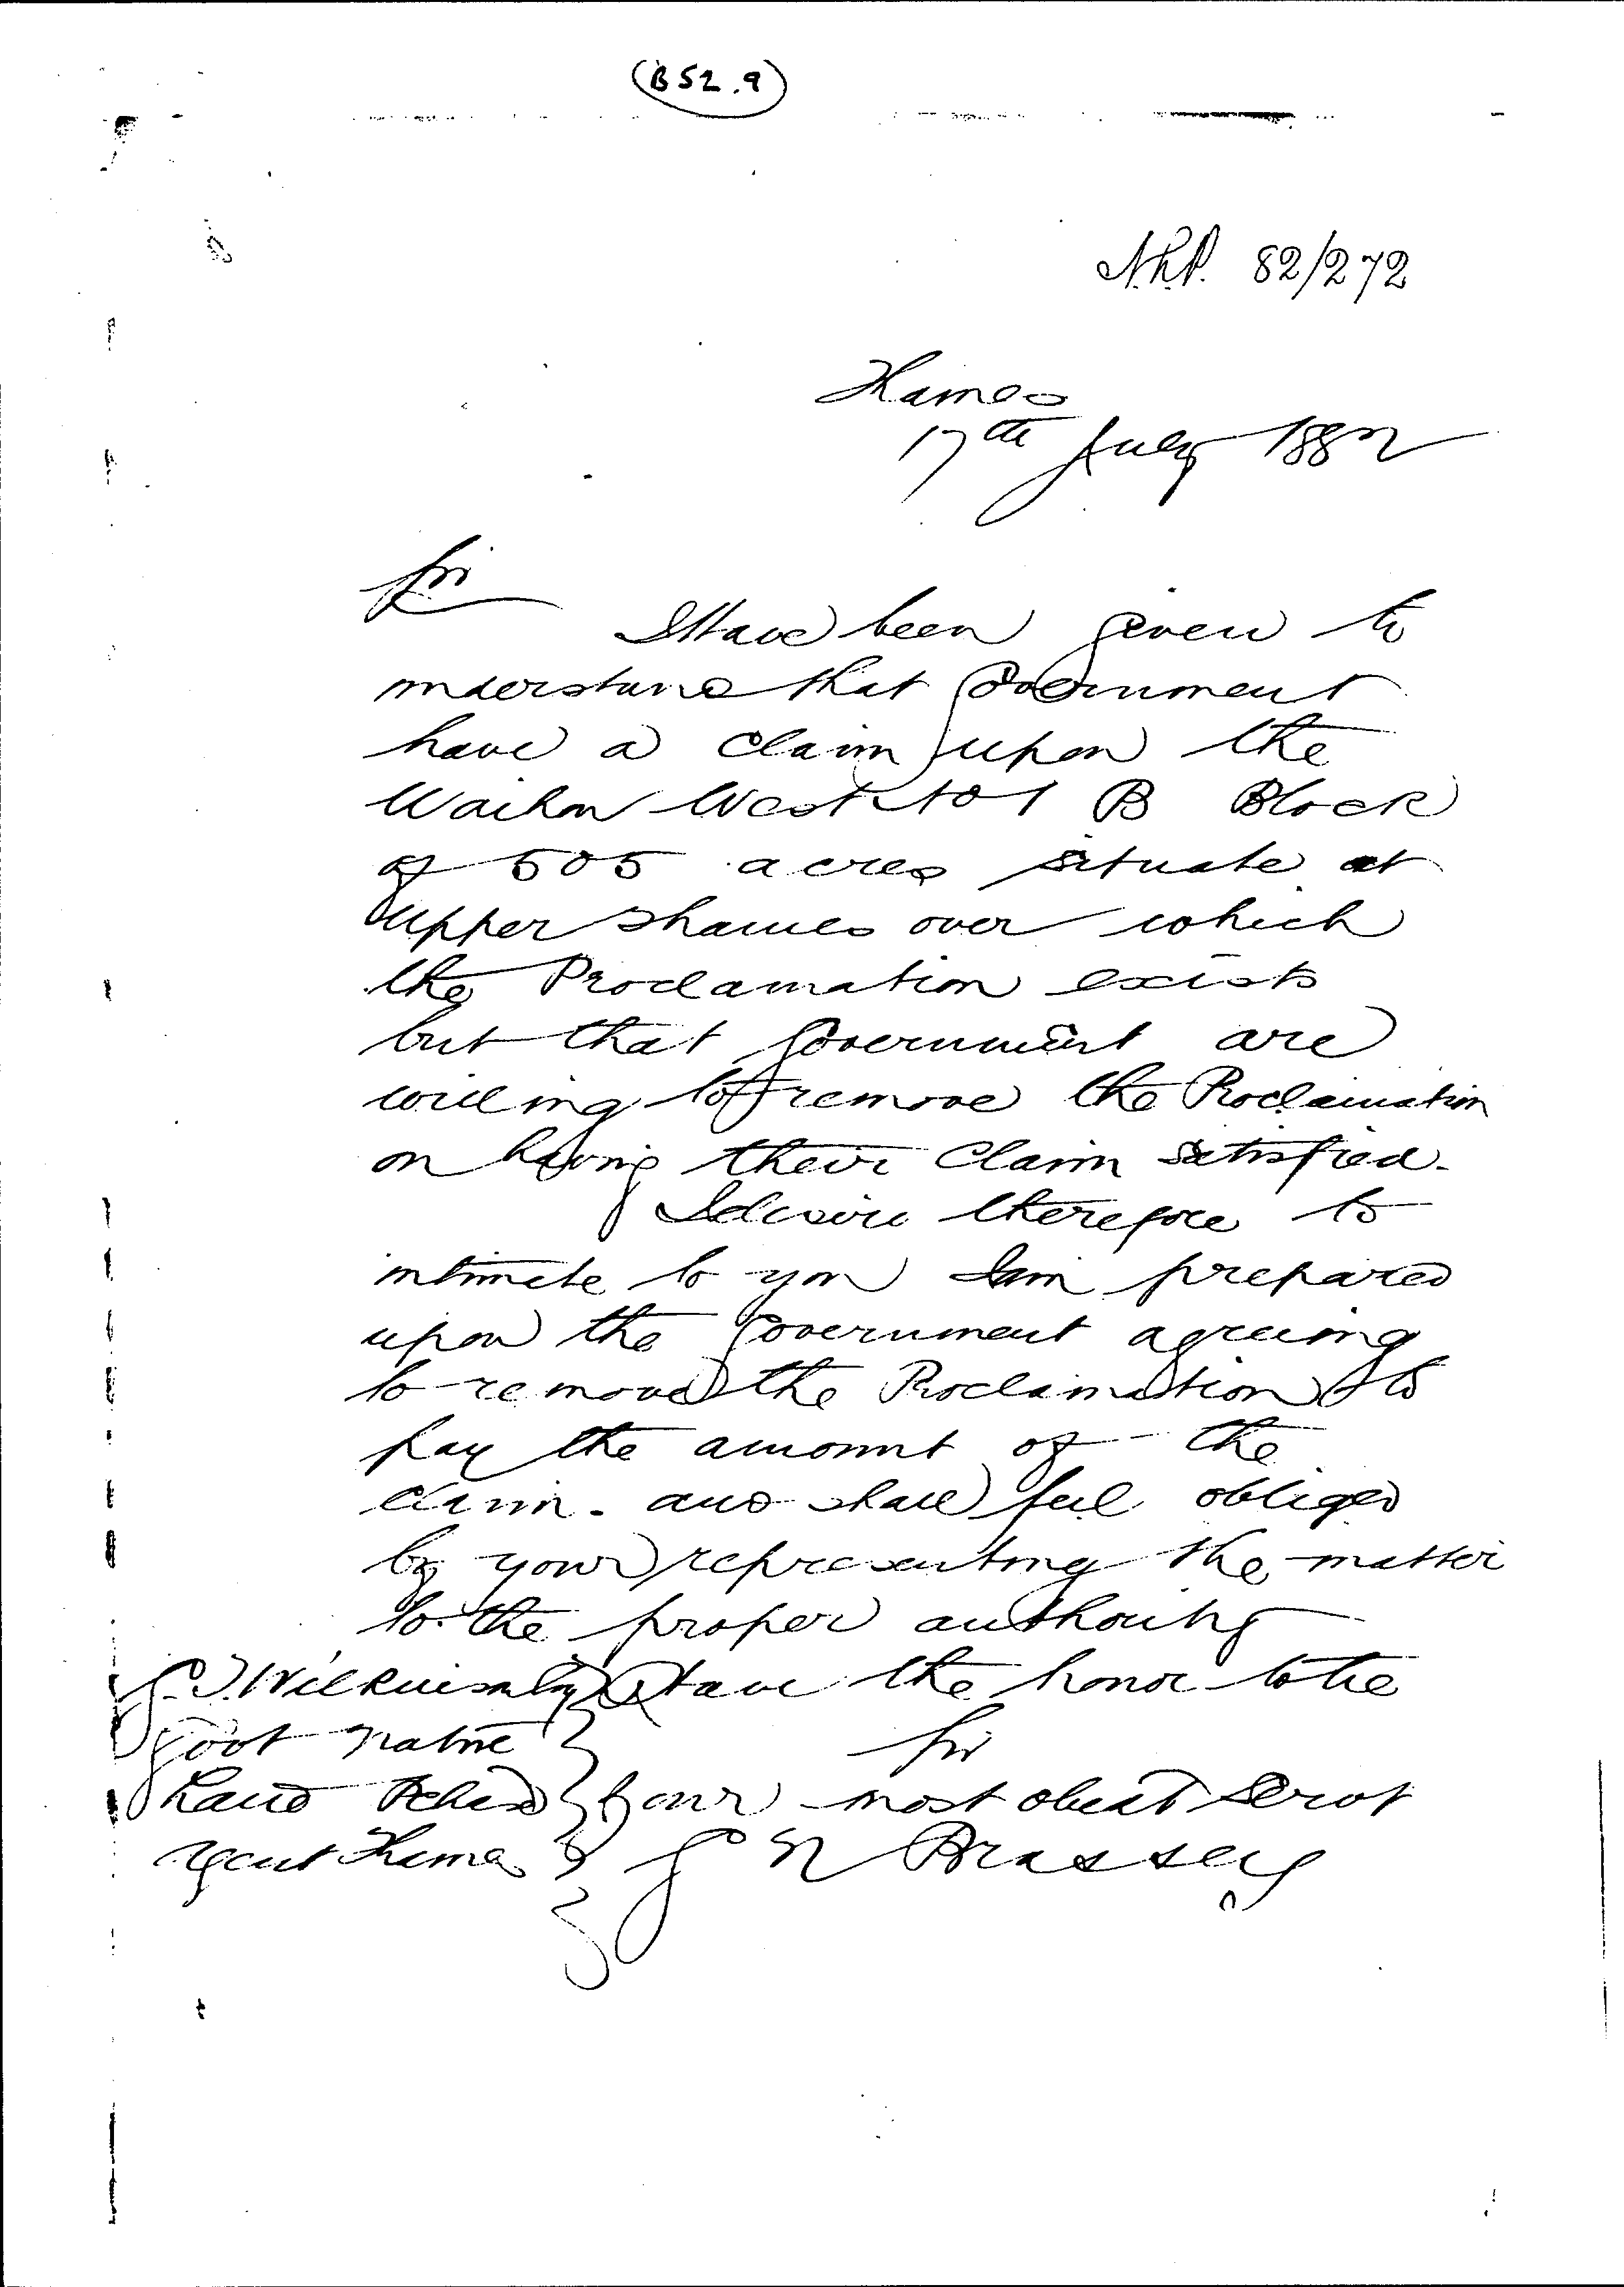 B52.9
N.L.P. 82/272
Thames
17th July 1882
Sir
I Have been given to
understand that Government
have a claim upon the
Waihou West No 1 B Block
of 505 acres situate at
Upper Thames over which
the Proclamation exists
but that Government are
willing to remove the Proclamation
on having their Claim satisfied.
I desire therefore to
intimate to you I am prepared
upon the Government agreeing
to remove the Proclamation to
pay the amount of the
claim. and shall feel obliged
by your representing the matter
to the proper authority
I Have the honor to be
Sir
Your most obedt Servt
J N Brassey
G.T. Wilkinson Esq
Govt Native
Land Pchase
Agent Thames